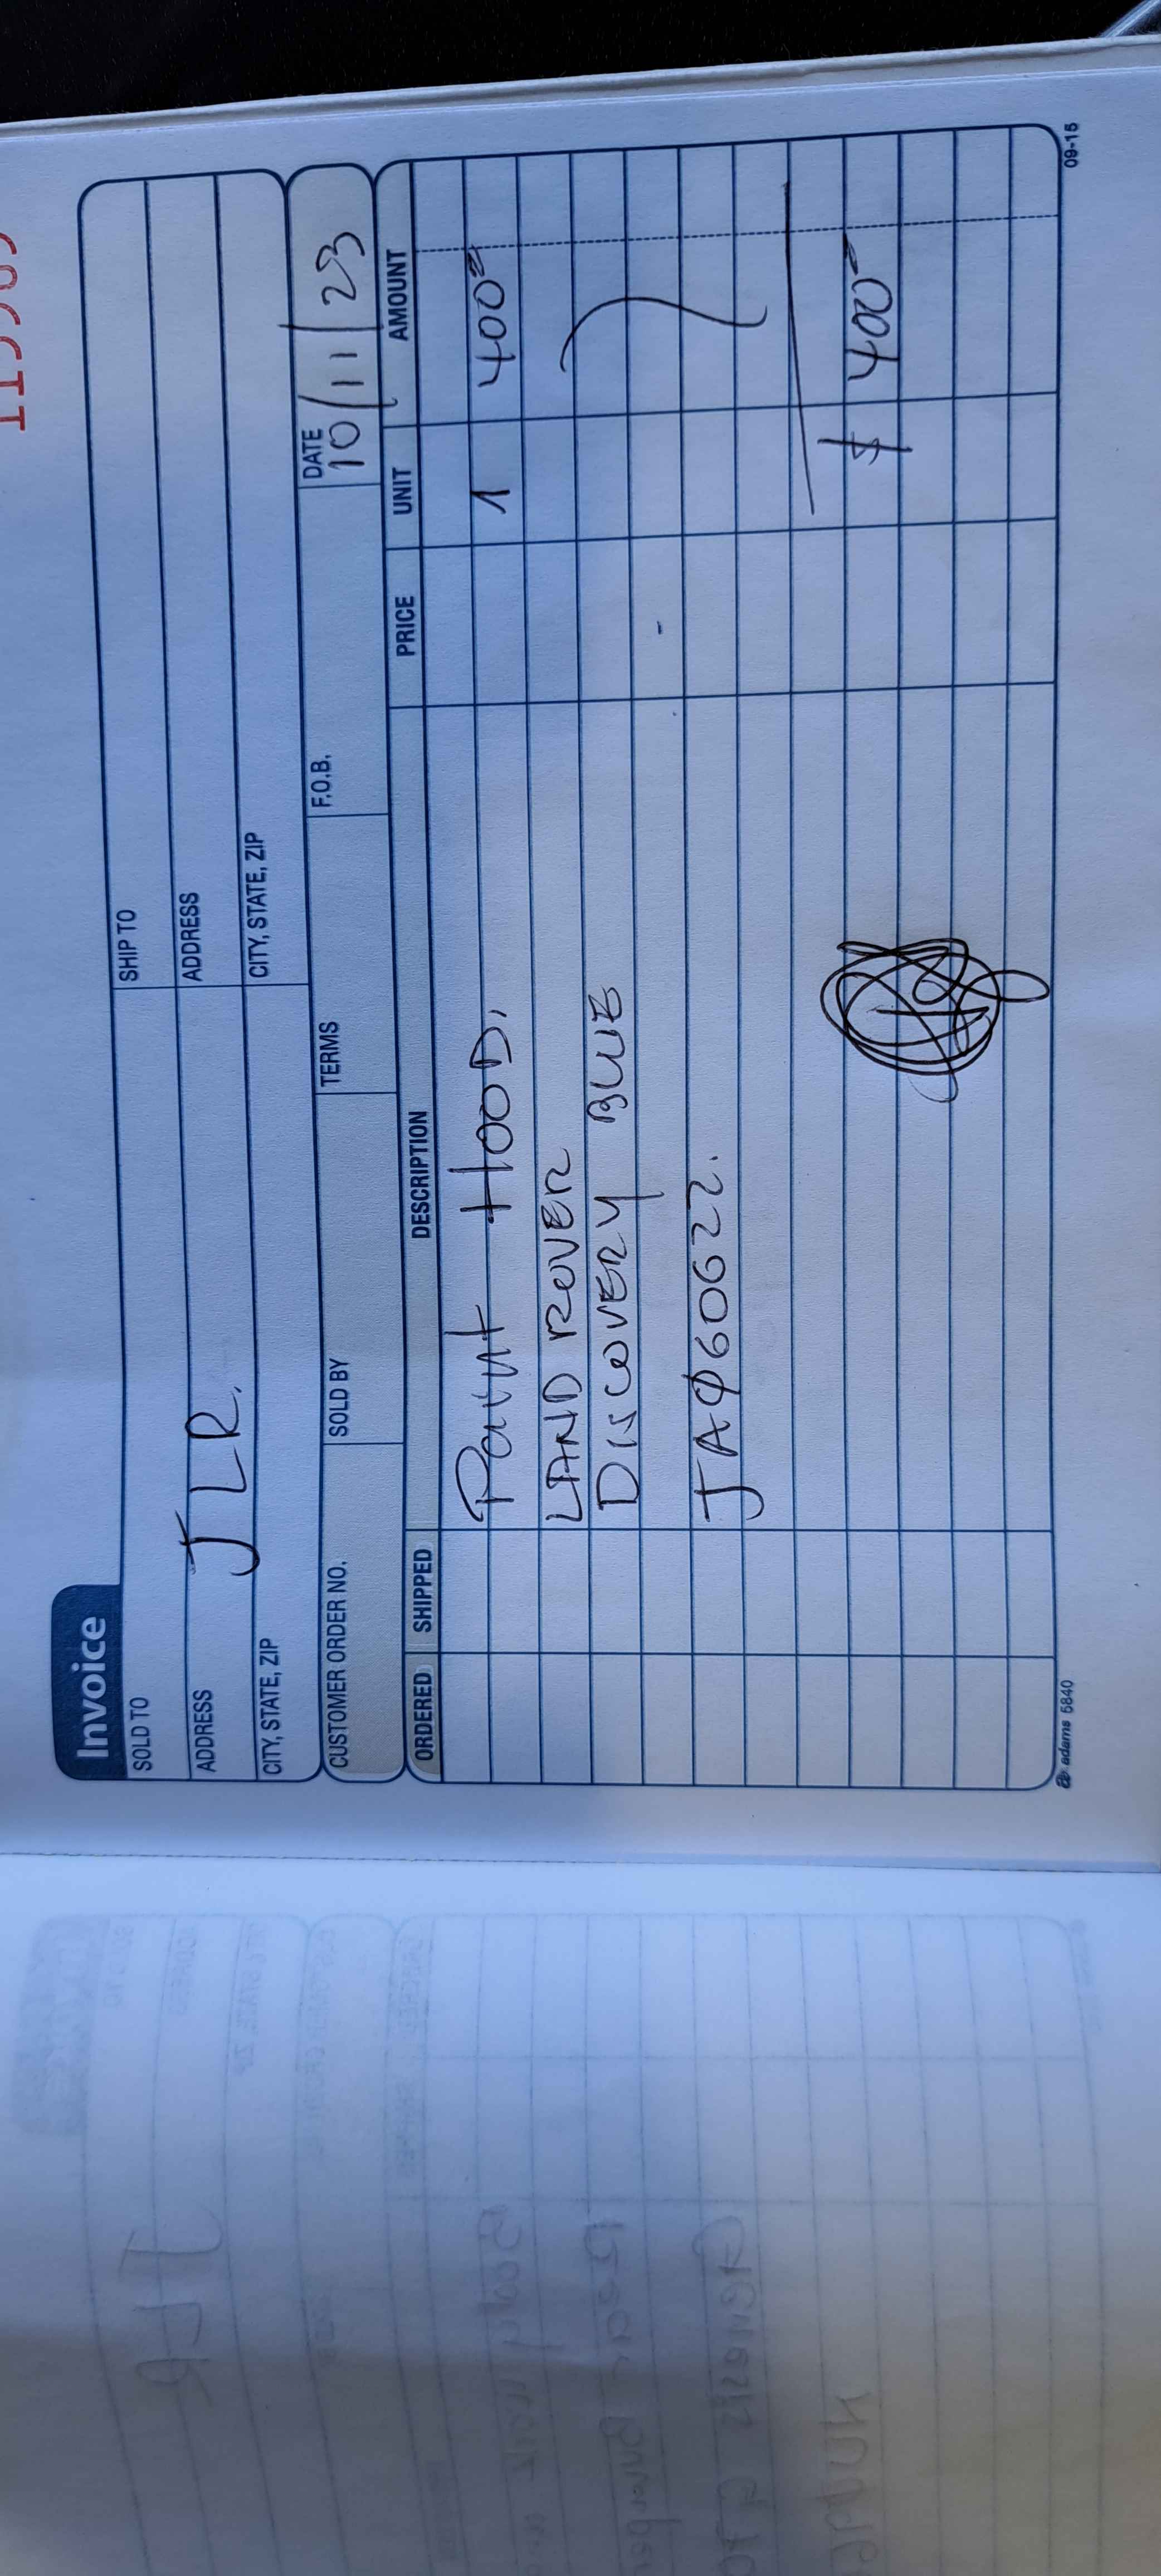 Invoice
SOLD TO
SHIP TO
ADDRESS
JLR.
ADDRESS
CITY, STATE, ZIP
CITY, STATE, ZIP
CUSTOMER ORDER NO.
SOLD BY
TERMS
F.O.B.
DATE
10/11/23
ORDERED SHIPPED DESCRIPTION PRICE UNIT AMOUNT
Paint HOOD, 1 400
LAND ROVER
DISCOVERY BLUE
JAØ60622.
$ 400
adams 5840
09-15